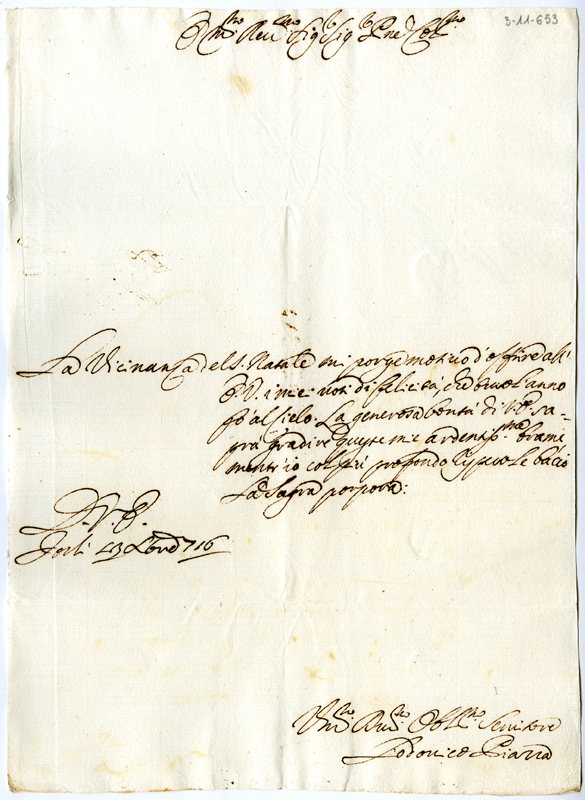 3-11-653
E.mo Rev.mo Sig.r Sig.r P.ne Col.mo
La Vicinanza del S. Natale mi porge motivo d'offrire all'
E.V. i miei voti di felicità, che ogn'anno
fò al Cielo. La generosa bontà di V.E. sa-
prà gradire queste mie ardentiss.me brame
mentr'io col più profondo rispetto le bacio
La Sagra porpora:
D. V. E.
Forlì 23 Xbre 716
Um.mo Dev.mo Obl.mo Servitore
Lodovico